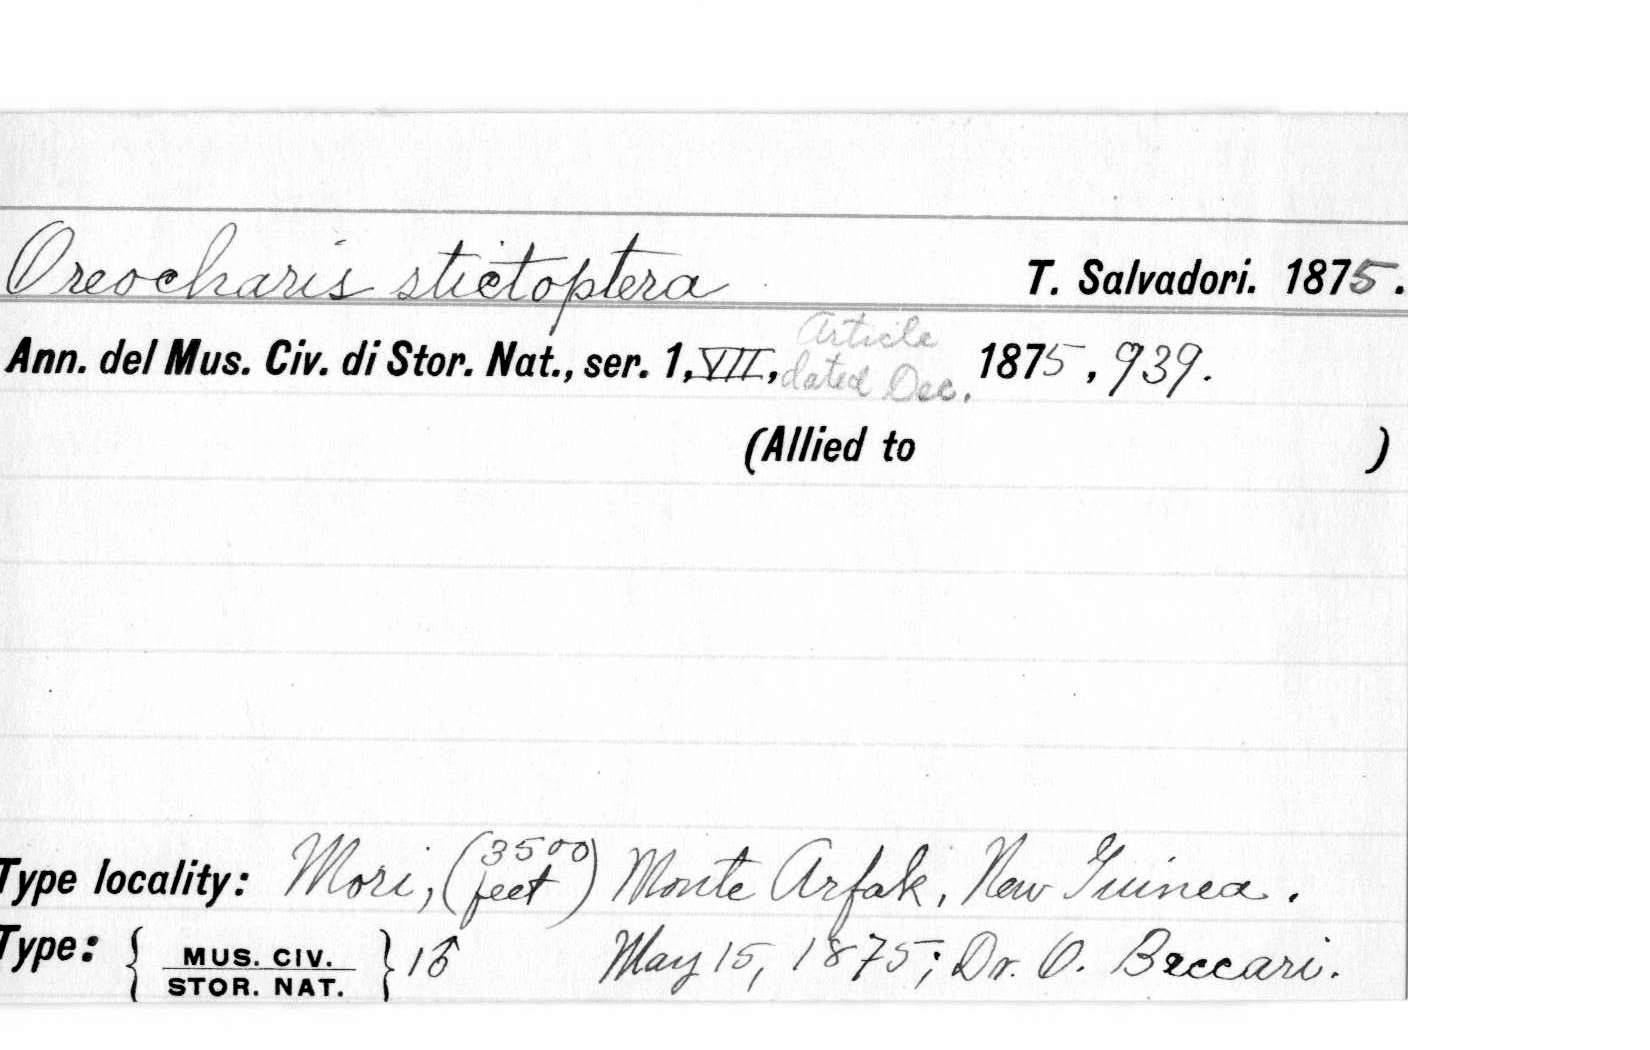 Oreocharis stictoptera T. Salvadori. 1875.
Ann. del Mus. Civ. di Stor. Nat., ser. 1, VII, Article dated Dec. 1875, 939.
(Allied to )
Type locality: Mori, (3500 feet) Monte Arfak, New Guinea.
Type: { MUS. CIV. STOR. NAT. } 1♂ May 15, 1875; Dr. O. Beccari.